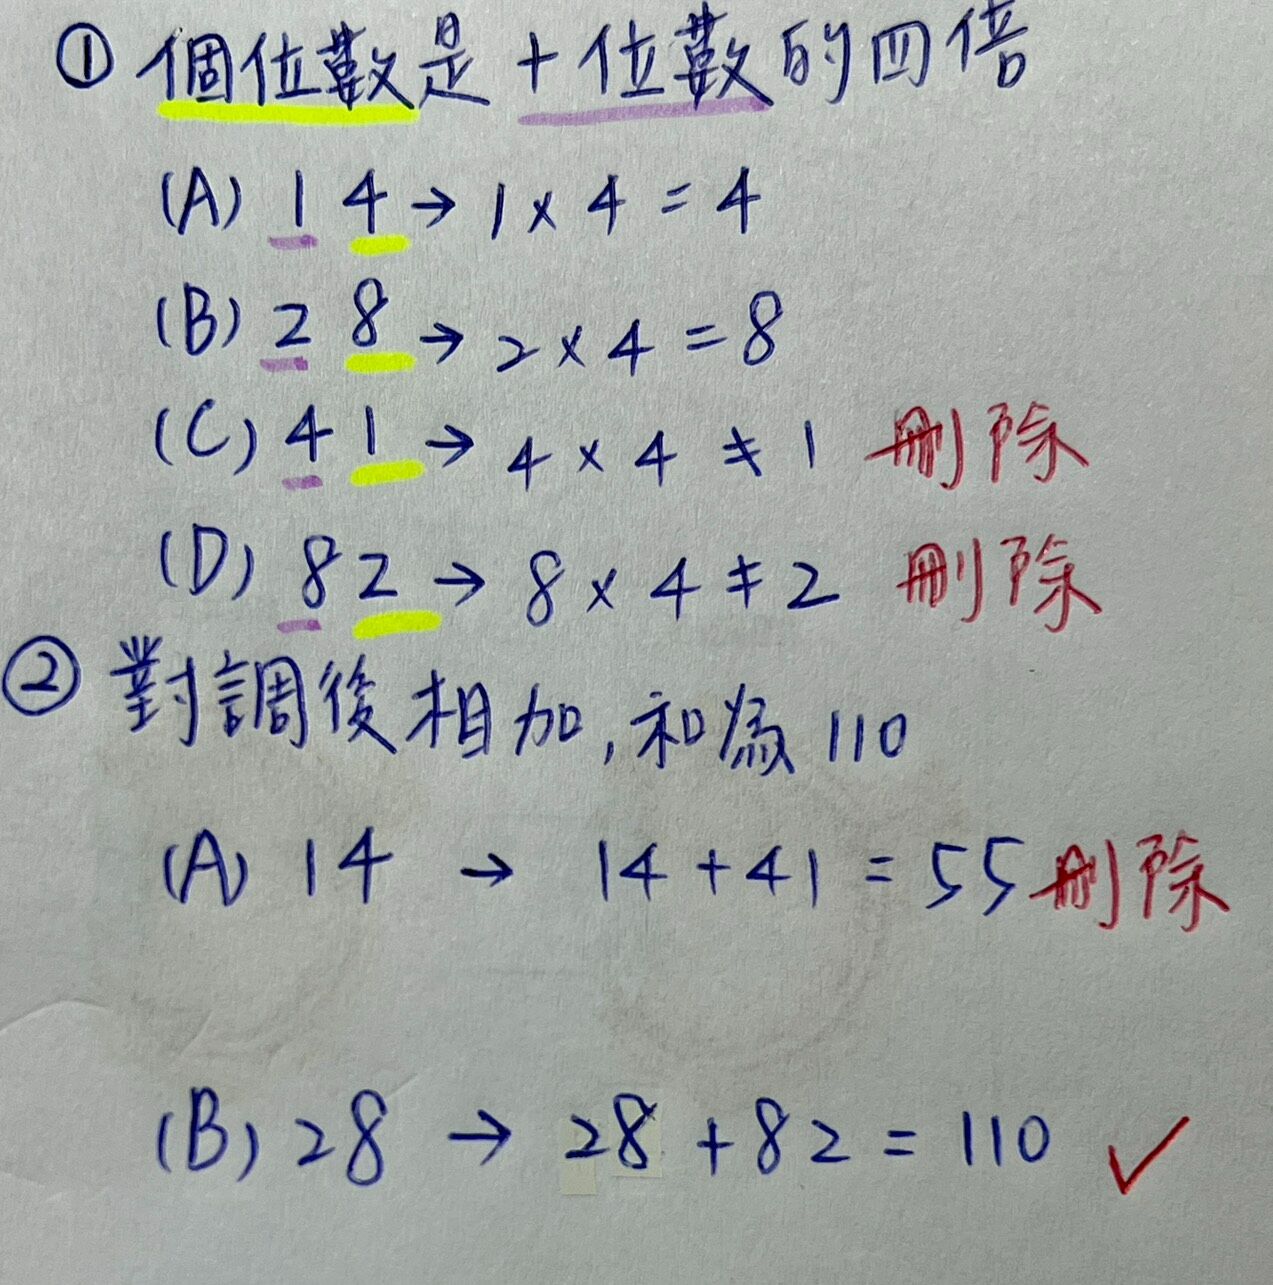 ① 個位數是十位數的四倍
(A) 14 → 1 × 4 = 4
(B) 28 → 2 × 4 = 8
(C) 41 → 4 × 4 ≠ 1 刪除
(D) 82 → 8 × 4 ≠ 2 刪除
② 對調後相加,和為110
(A) 14 → 14 + 41 = 55 刪除
(B) 28 → 28 + 82 = 110 ✓